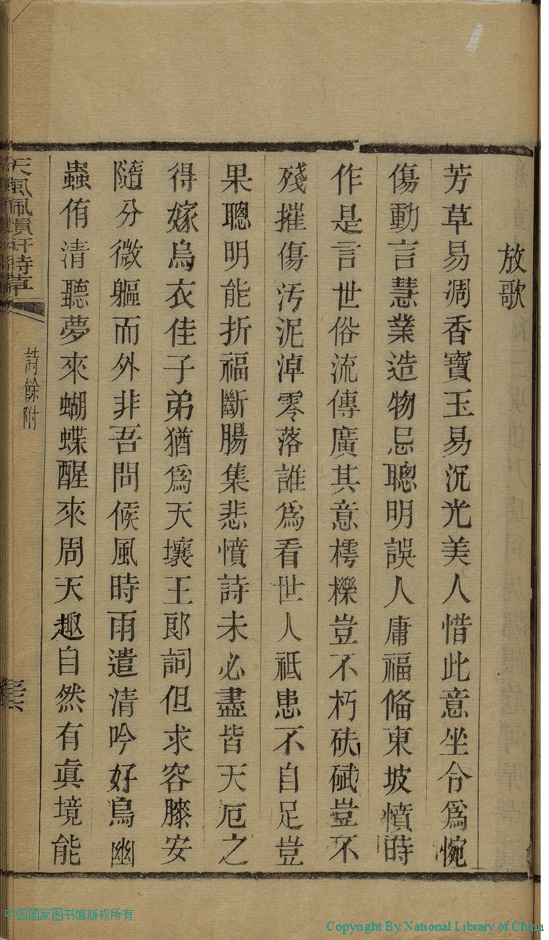 放歌
芳草易凋香寶玉易沉光美人惜此意坐令爲惋
傷動言慧業造物忌聰明誤人庸福脩東坡憤時
作是言世俗流傳廣其意樗櫟豈不朽砆碔豈不
殘摧傷汚泥淖零落誰爲看世人祇患不自足豈
果聰明能折福斷腸集悲憤詩未必盡皆天厄之
得嫁烏衣佳子弟猶爲天壤王郞詞但求容膝安
隨分微軀而外非吾問候風時雨遣清吟好鳥幽
蟲侑清聽夢來蝴蝶醒來周天趣自然有眞境能
天風佩 軒詩草
詩餘附
中国国家图书馆版权所有
Copyright By National Library of China